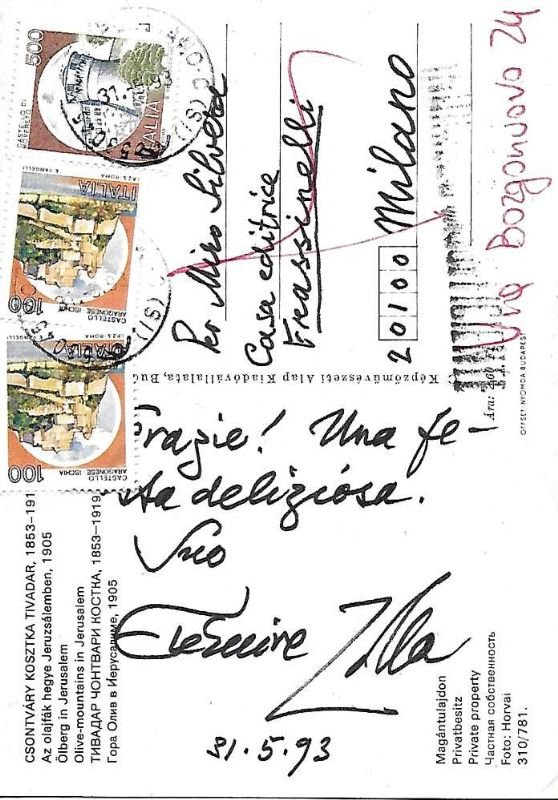 CSONTVÁRY KOSZTKA TIVADAR, 1853-191
Az olajfák hegye Jeruzsálemben, 1905
Ölberg in Jerusalem
Olive-mountains in Jerusalem
ТИВАДАР ЧОНТВАРИ КОСТКА, 1853—1919
Гора Олив в Иерусалиме, 1905
Grazie! Una fe-
sta deliziosa.
Suo
31.5.93
Magántulajdon
Privatbesitz
Private property
Частная собственность
Foto: Horvai
310/781.
Képzőművészeti Alap Kiadóvállalata, Bu
Ára:
OFFSET-NYOMDA BUDAPEST
Per Miro Silvera
Casa editrice
Frassinelli
20100 Milano
Via Borgonuovo 24
500
ITALIA
100
CASTELLO
ARAGONESE ISCHIA
ITALIA
100
CASTELLO
ARAGONESE ISCHIA